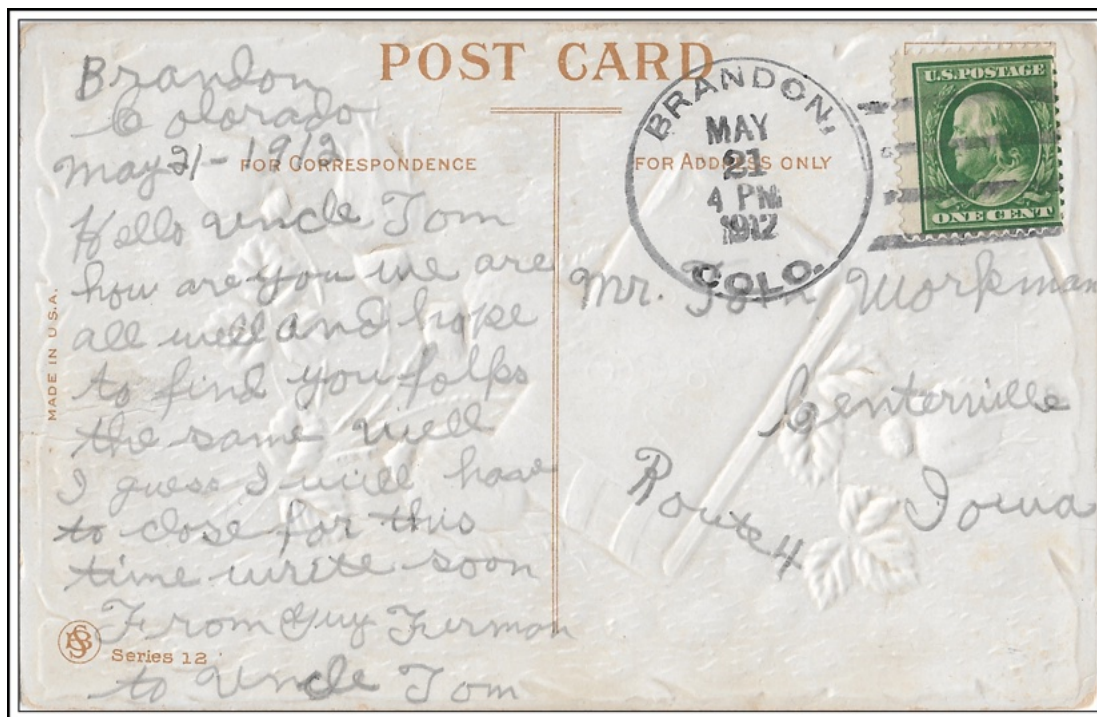 POST CARD
FOR CORRESPONDENCE
FOR ADDRESS ONLY
MADE IN U.S.A.
Brandon
Colorado
May 21-1912
Hello Uncle Tom
how are you we are
all well and hope
to find you folks
the same well
I guess I will have
to close for this
time write soon
From Guy Furman
to Uncle Tom
Series 12
BRANDON,
MAY
21
4 PM
1912
COLO.
U.S. POSTAGE
ONE CENT
Mr. Tom Workman
Centerville
Iowa
Route 4